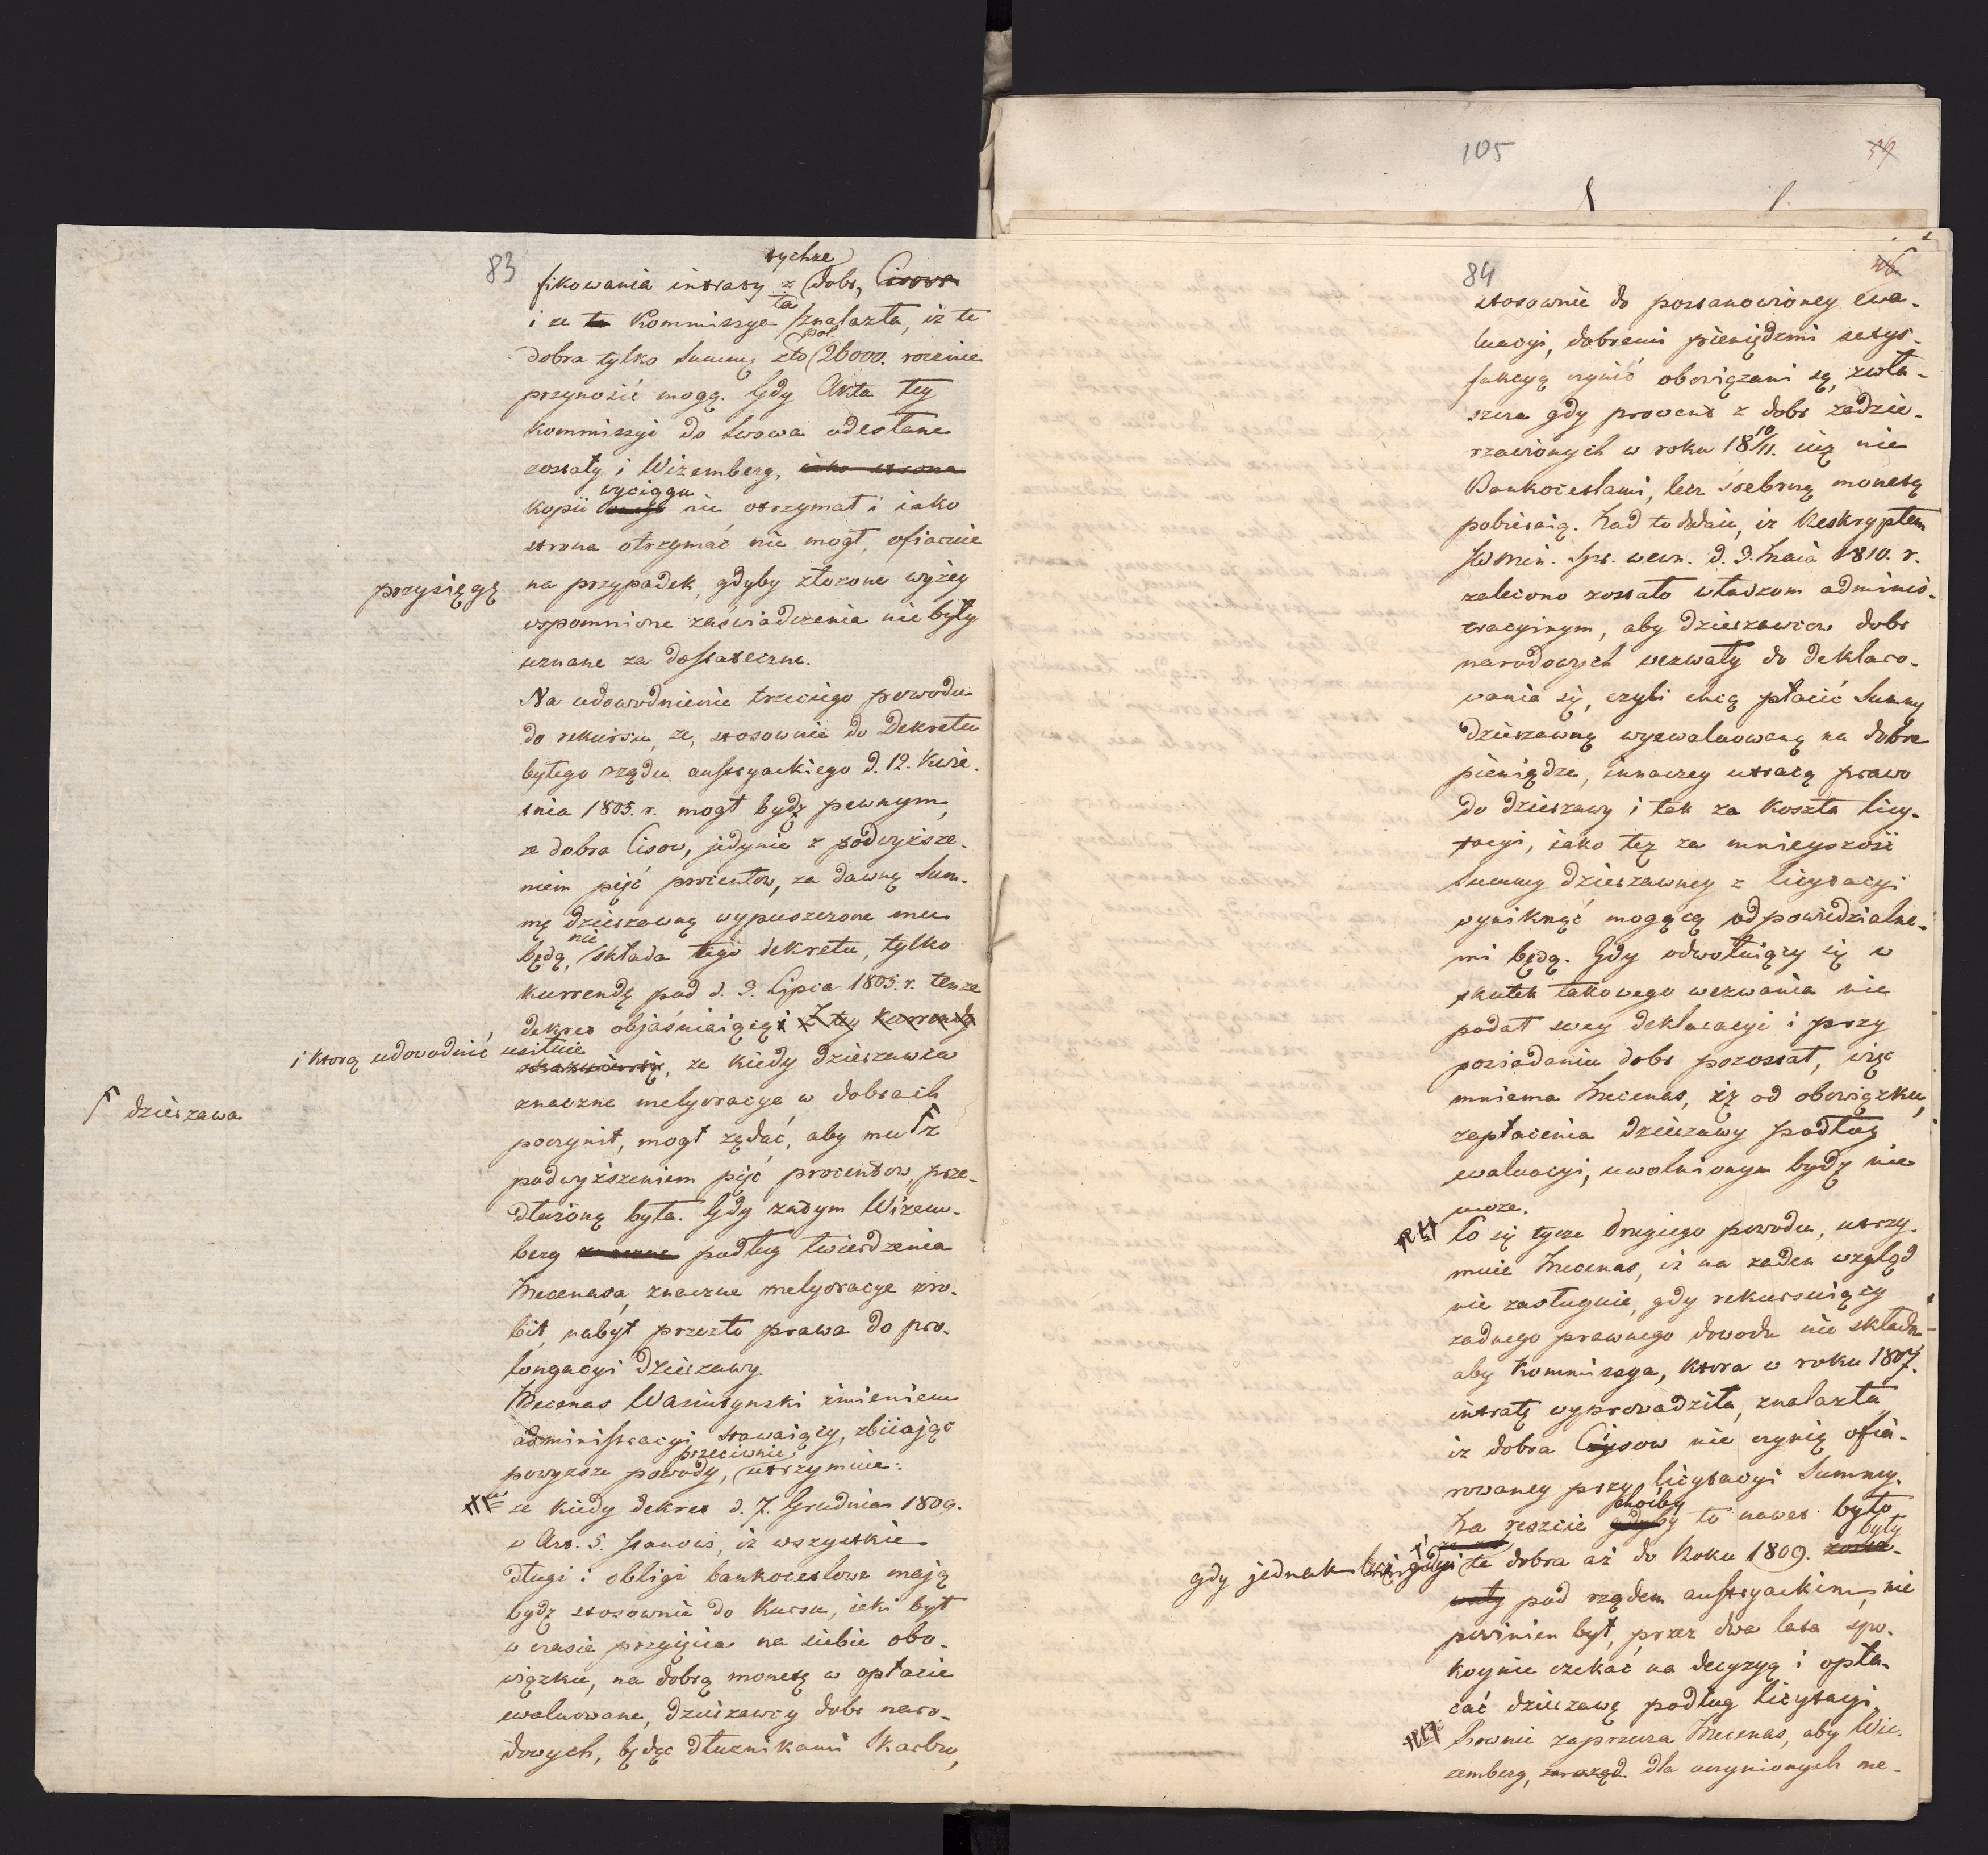 83
tychze
fikowania intraty z dobr, Cisowa
i ze ta Kommissya znalazła, iż te
pol
dobra tylko Summę zło 26000. rocznie
przynosić mogą. Gdy Akta tey
Kommissyi do Lwowa odesłane
zostały i Wizemberg, iako strona
wyciągu
kopii nie otrzymał i iako
strona otrzymać nie mogł, ofiaruie
przysięgę na przypadek, gdyby złożone wyżey
wspomnione zaświadczenia nie były
uznane za dostateczne.
Na udowodnienie trzeciego powodu
do rekursu, ze, stosownie do Dekretu
byłego rządu austryackiego d. 12. Kwie-
tnia 1805. r. mogł bydź pewnym,
ze dobra Cisow, jedynie z podwyższe-
niem pięć procentow, za dawną Sum-
mę dzierzawną wypuszczone mu
nie
będą, składa tego dekretu, tylko
kurrendę pod d. 9. Lipca 1805. r. tenze
dekret objaśniaiącą i Z tey kurrendy
i ktorą udowodnić usiłuie
, ze kiedy dzierzawca
znaczne melyoracye w dobrach
dzierzawa
poczynił, mogł żądać, aby mu z
podwyższeniem pięć procentow, prze-
dłużoną była. Gdy zatym Wizem-
berg znaczne podług twierdzenia
Mecenasa znaczne melyoracye zro-
bił, nabył przezto prawa do pro-
longacyi dzierzawy.
Mecenas Wasiutynski imieniem
administracyi stawaiący, zbiiając
przeciwnie
powyzsze powody, utrzymuie:
ze kiedy dekret d. 7. Grudnia 1809.
w Art. 5. stanowi, iż wszystkie
długi i obligi bankocetlowe mają
bydź stosownie do Kursu, iaki był
w czasie przyięcia na siebie obo-
wiązku, na dobrą monetę w opłacie
ewaluowane, dzierzawcy dobr naro-
dowych, będąc dłużnikami Skarbu,
105
59
84
46
stosownie do postanowioney ewa-
luacyi, dobremi pieniędzmi satys-
fakcyą czynić obowiązani są, zwła-
szcza gdy procent z dobr zadzie-
rzawionych w roku 18 10/11. iuz nie
Bankocetlami, lecz srebrną monetą
pobieraią. Nad to dodaie, iz Reskryptem
JWMin. Spr. wewn. d. 9. Maia 1810. r.
zalecono zostało władzom adminis-
tracyinym, aby dzierzawcow dobr
narodowych wezwały do deklaro-
wania się, czyli chcą płacić Summę
dzierzawną wyewaluowaną na dobre
pieniądze, innaczey utracą prawo
do dzierzawy i tak za koszta licy-
tacyi, iako tez za mnieyszość
Summy dzierzawney z licytacyi
wyniknąć mogącą odpowiedzialne-
mi będą. Gdy odwołuiący się w
skutek takowego wezwania nie
podał swey deklaracyi i przy
posiadaniu dobr pozostał, więc
mniema Mecenas, iż od obowiązku,
zapłacenia dzierzawy podług
ewaluacyi, uwolnionym bydź nie
moze.
Co się tycze drugiego powodu, utrzy-
muie Mecenas, iz na zaden wzgląd
nie zasługuie, gdy rekursuiący
zadnego prawnego dowodu nie składa
aby Kommissya, ktora w roku 1807.
intratę wyprowadziła, znalazła,
iz dobra Cisow nie czynią ofia-
rowaney przy licytacyi Summy.
choćby
Na reszcie gdyby to nawet było,
były
gdy jednak te dobra aż do Roku 1809. zosta-
wały pod rządem austryackim, nie
powinien był, przez dwa lata spo-
koynie czekać na decyzyą i opła-
cać dzierzawę podług licytacyi.
Rownie zaprzecza Mecenas, aby Wi-
zemberg, dla uczynionych me-